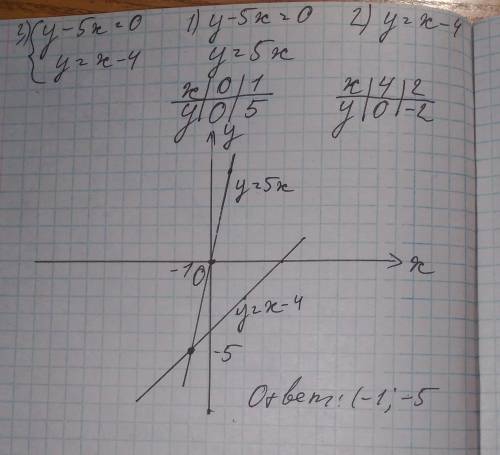 3) { y-5x=0
y=x-4
1) y-5x=0
y=5x
x | 0 | 1
y | 0 | 5
2) y=x-4
x | 4 | 2
y | 0 | -2
y
y=5x
-1 0
x
y=x-4
-5
Ответ: (-1; -5